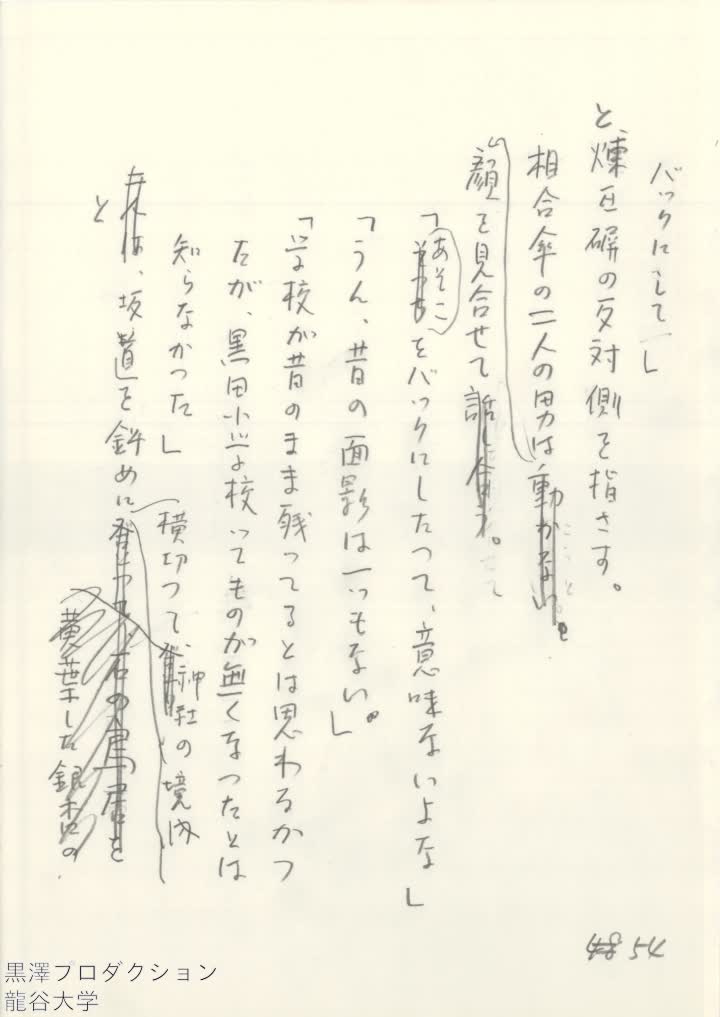 バックにして」
と、煉瓦塀の反対側を指さす。
相合傘の二人の男は動かない。
顔を見合せて話し合う。
「あそこをバックにしたって、意味ないよな」
「うん、昔の面影は一つもない。」
「学校が昔のまま残ってるとは思わなかつ
たが、黒田小学校ってものが無くなつたとは
知らなかつた」
と
は、坂道を斜めに登って、石の鳥居を
横切つて、神社の境内
黄葉した銀杏の
48 54
黒澤プロダクション
龍谷大学